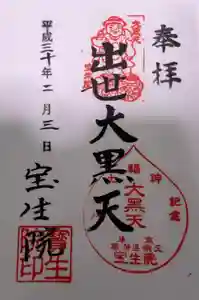 奉拝
出世大黒天
平成三十年二月三日
宝生院
大黒天
宝生院
記念